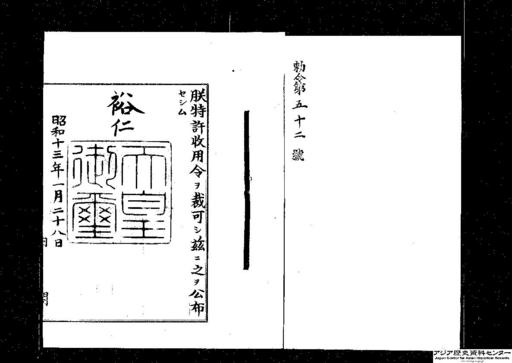 勅令第五十二號
朕特許收用令ヲ裁可シ茲ニ之ヲ公布
セシム
裕仁
天皇
御璽
昭和十三年一月二十八日
内閣
アジア歴史資料センター
Japan Center for Asian Historical Records